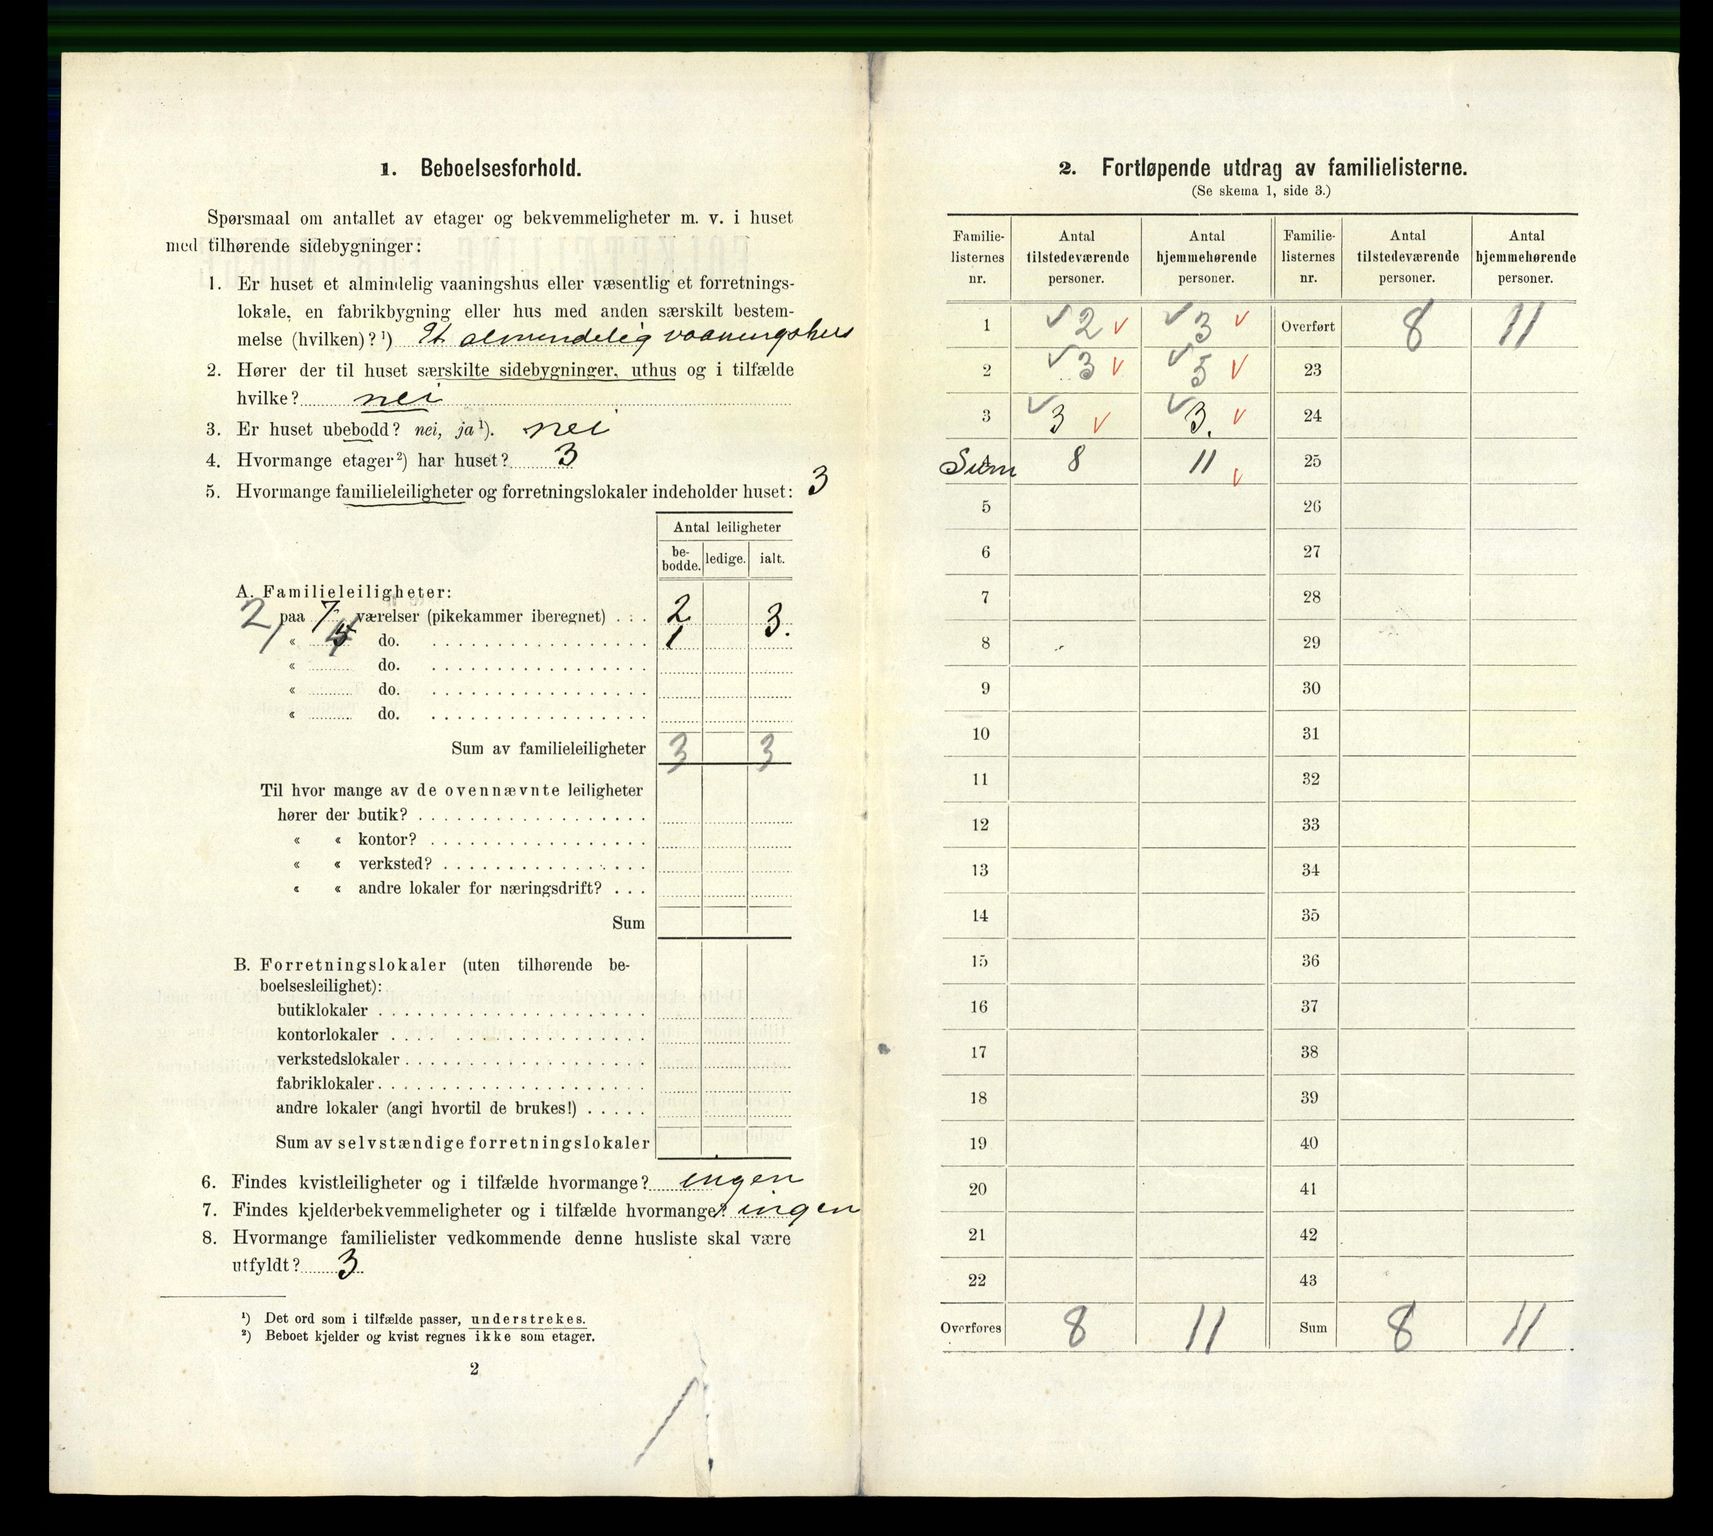 1. Beboelsesforhold.
Spørsmaal om antallet av etager og bekvemmeligheter m. v. i huset
med tilhørende sidebygninger:
1. Er huset et almindelig vaaningshus eller væsentlig et forretnings-
lokale, en fabrikbygning eller hus med anden særskilt bestem-
melse (hvilken)?¹) Et almindelig vaaningshus
2. Hører der til huset særskilte sidebygninger, uthus og i tilfælde
hvilke? nei
3. Er huset ubebodd? nei, ja¹). nei
4. Hvormange etager²) har huset? 3
5. Hvormange familieleiligheter og forretningslokaler indeholder huset: 3
Antal leiligheter
be-
bodde. ledige. ialt.
A. Familieleiligheter:
2 paa 7 værelser (pikekammer iberegnet) . . . 2 3.
« do. 1
« do.
« do.
« do.
Sum av familieleiligheter 3 3
Til hvor mange av de ovennævnte leiligheter
hører der butik?
« « kontor?
« « verksted?
« « andre lokaler for næringsdrift? . . .
Sum
B. Forretningslokaler (uten tilhørende be-
boelsesleilighet):
butiklokaler
kontorlokaler
verkstedslokaler
fabriklokaler
andre lokaler (angi hvortil de brukes!)
Sum av selvstændige forretningslokaler
6. Findes kvistleiligheter og i tilfælde hvormange? ingen
7. Findes kjelderbekvemmeligheter og i tilfælde hvormange? ingen
8. Hvormange familielister vedkommende denne husliste skal være
utfyldt? 3
¹) Det ord som i tilfælde passer, understrekes.
²) Beboet kjelder og kvist regnes ikke som etager.
2
2. Fortløpende utdrag av familielisterne.
(Se skema 1, side 3.)
Familie- Antal Antal Familie- Antal Antal
listernes tilstedeværende hjemmehørende listernes tilstedeværende hjemmehørende
nr. personer. personer. nr. personer. personer.
1 ✓ 2 ✓ ✓ 3 ✓ Overført 8 11
2 ✓ 3 ✓ ✓ 5 ✓ 23
3 ✓ 3 ✓ ✓ 3. ✓ 24
Sum 8 11 ✓ 25
5 26
6 27
7 28
8 29
9 30
10 31
11 32
12 33
13 34
14 35
15 36
16 37
17 38
18 39
19 40
20 41
21 42
22 43
Overføres 8 11 Sum 8 11